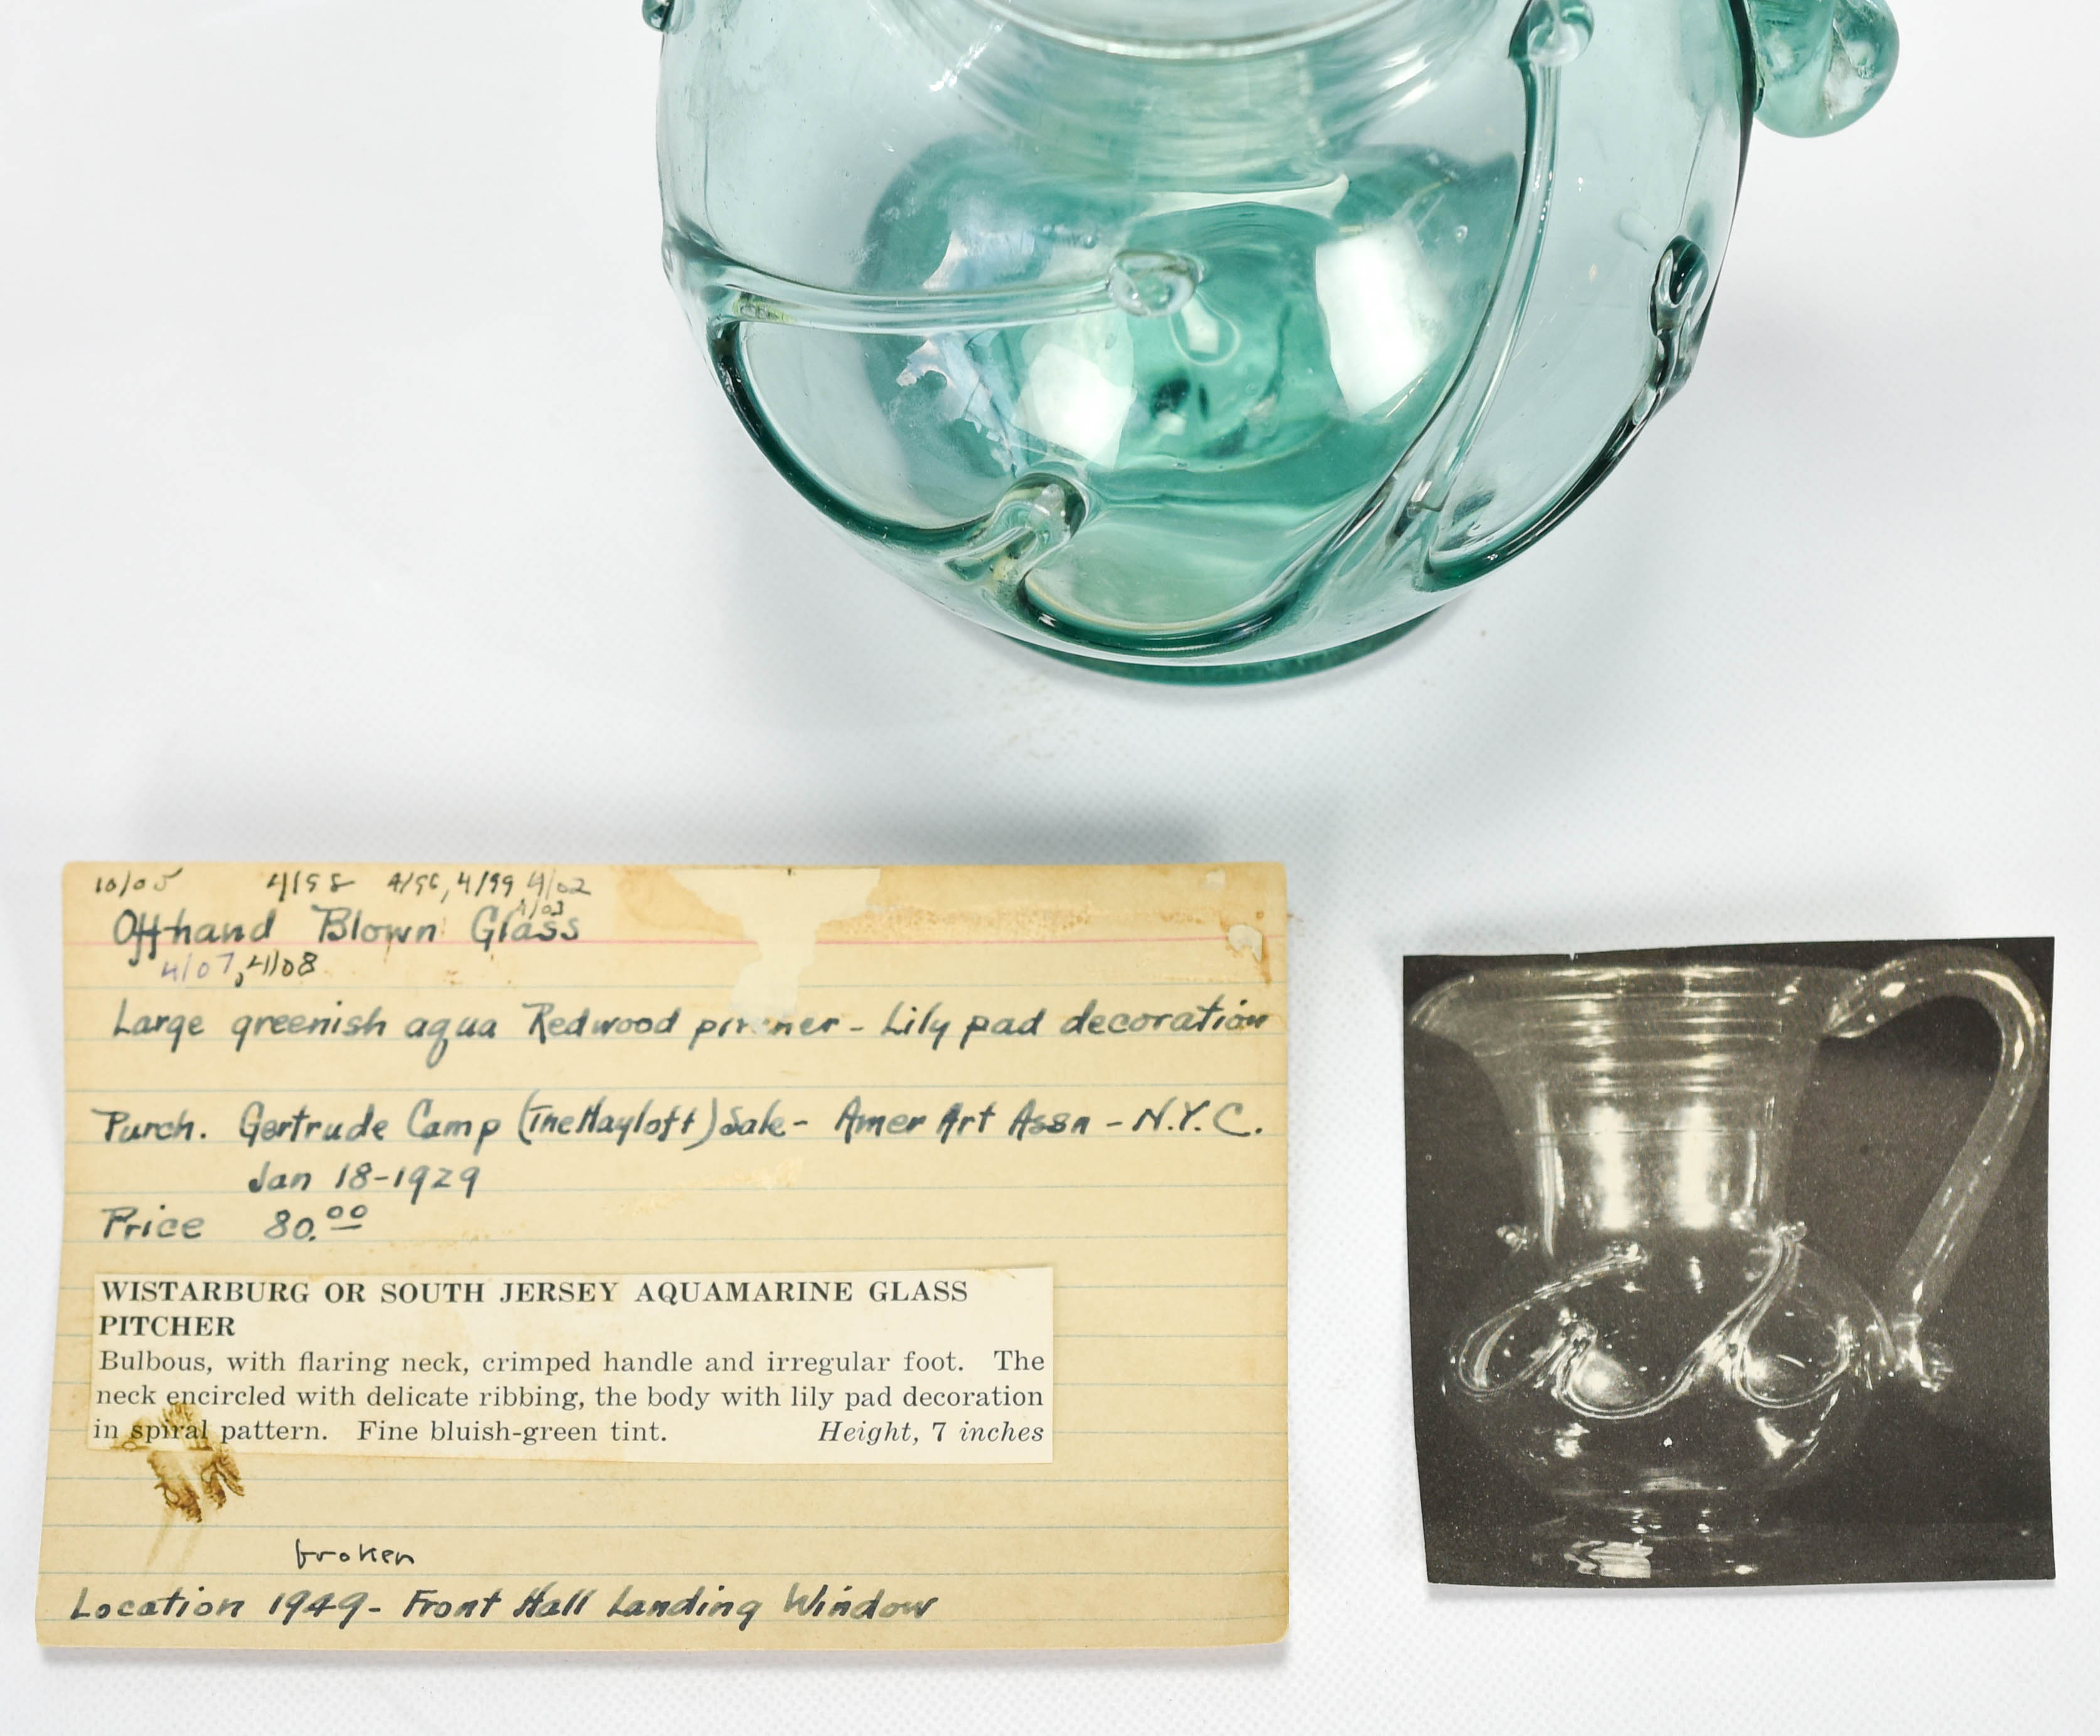 10/05 4/98 4/96, 4/99 4/02
4/03
Offhand Blown Glass
4/07, 4/08
Large greenish aqua Redwood pitcher - Lily pad decoration
Purch. Gertrude Camp (The Hayloft) Sale - Amer Art Assn - N.Y.C.
Jan 18-1929
Price 80.00
WISTARBURG OR SOUTH JERSEY AQUAMARINE GLASS
PITCHER
Bulbous, with flaring neck, crimped handle and irregular foot. The
neck encircled with delicate ribbing, the body with lily pad decoration
in spiral pattern. Fine bluish-green tint. Height, 7 inches
broken
Location 1949- Front Hall Landing Window